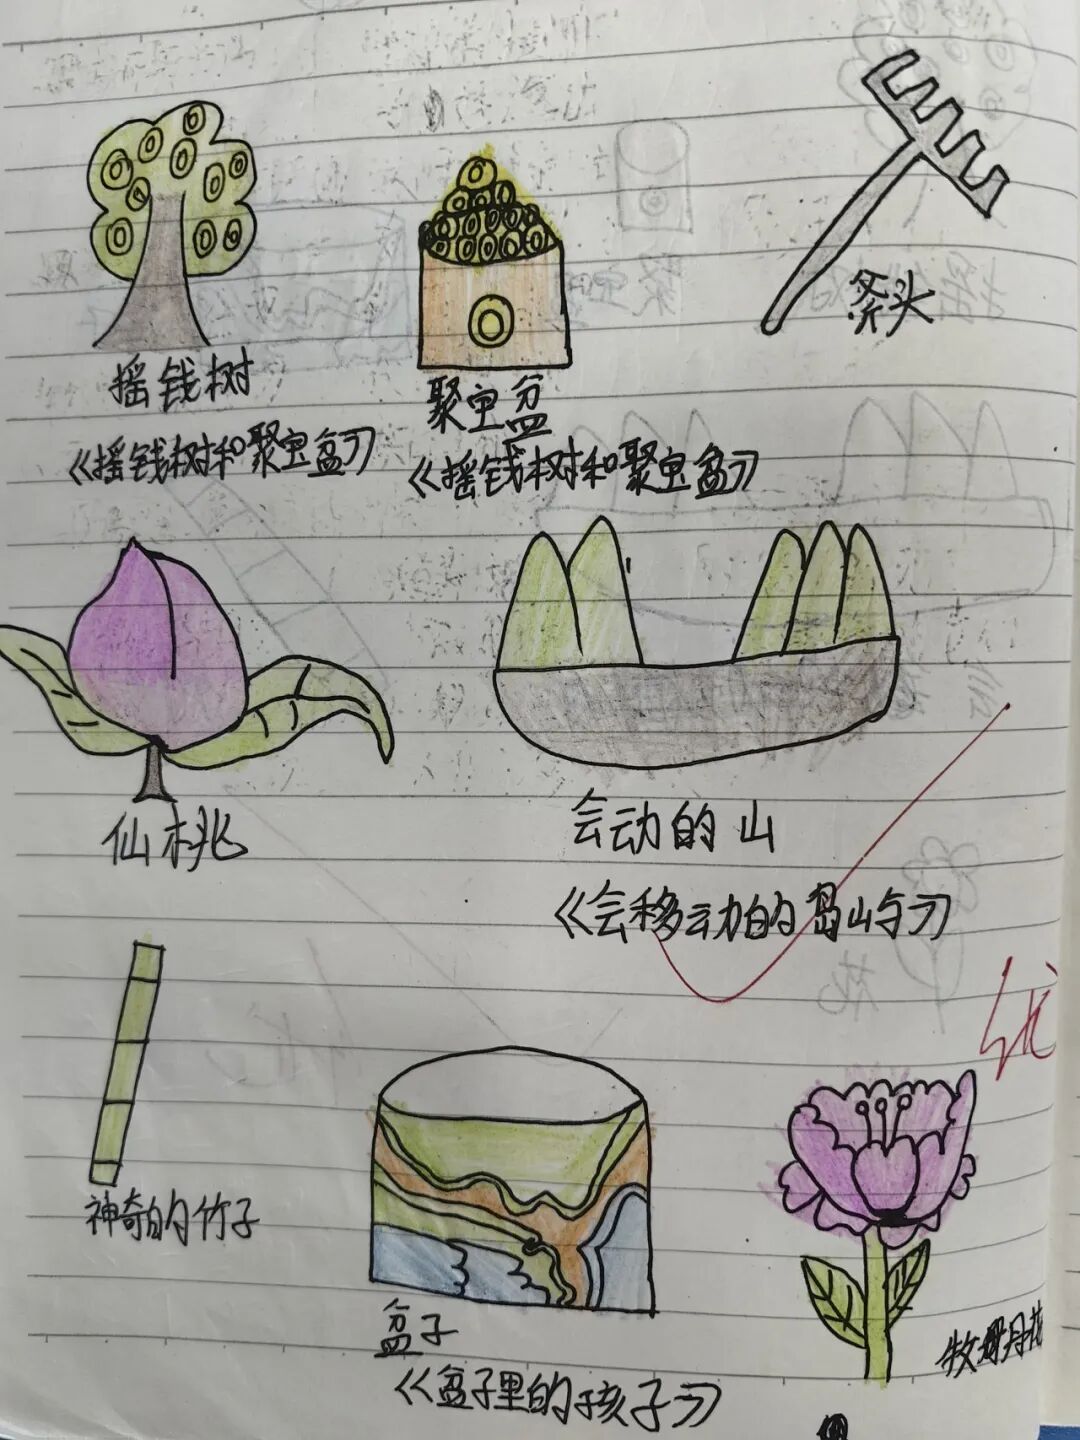 摇钱树
《摇钱树和聚宝盆》
聚宝盆
《摇钱树和聚宝盆》
斧头
仙桃
会动的山
《会移动的岛屿》
优
神奇的竹子
盆子
《盆子里的孩子》